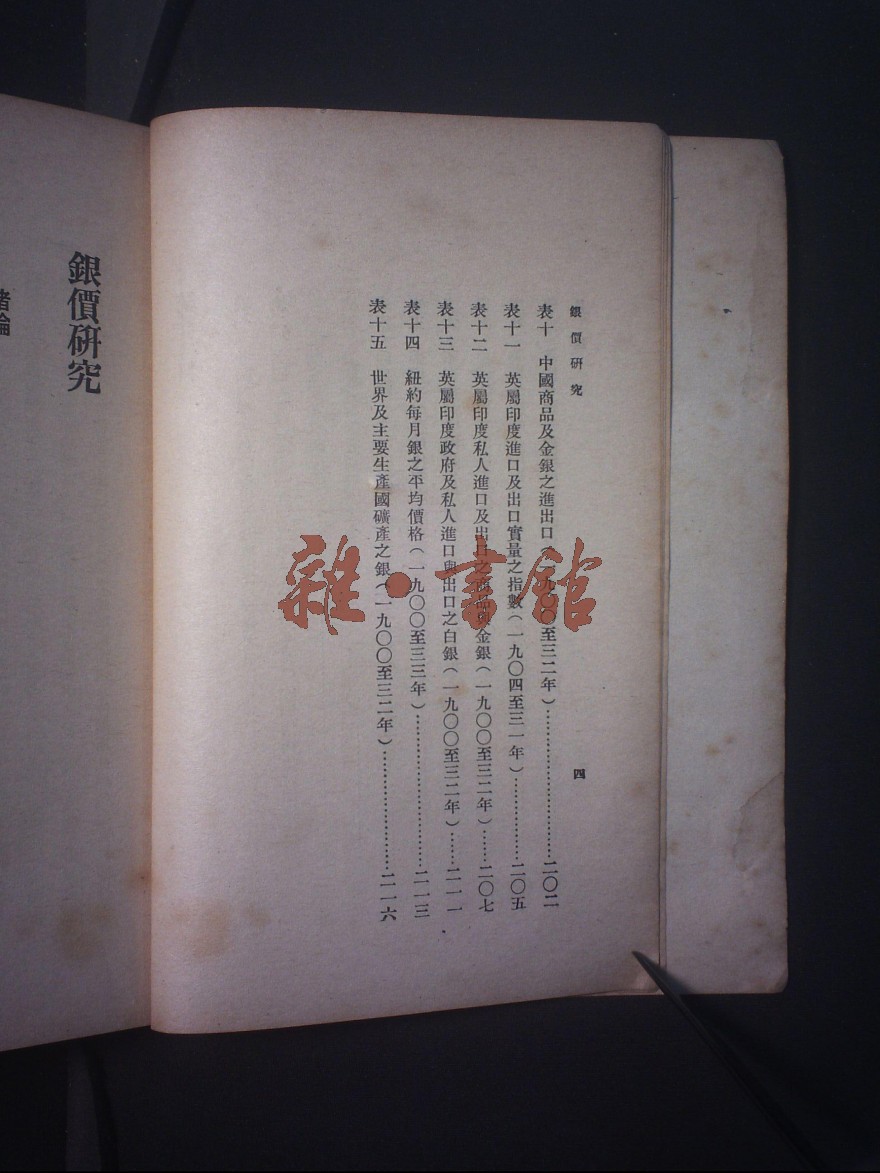 銀價研究
四
表十　中國商品及金銀之進出口(一九〇〇至三二年)……………………二〇二
表十一　英屬印度進口及出口實量之指數(一九〇四至三一年)……………二〇五
表十二　英屬印度私人進口及出口之商品與金銀(一九〇〇至三二年)……二〇七
表十三　英屬印度政府及私人進口與出口之白銀(一九〇〇至三二年)……二一一
表十四　紐約每月銀之平均價格(一九〇〇至三三年)……………………二一三
表十五　世界及主要生產國礦產之銀(一九〇〇至三二年)………………二一六
銀價研究
緒論
雜·書館